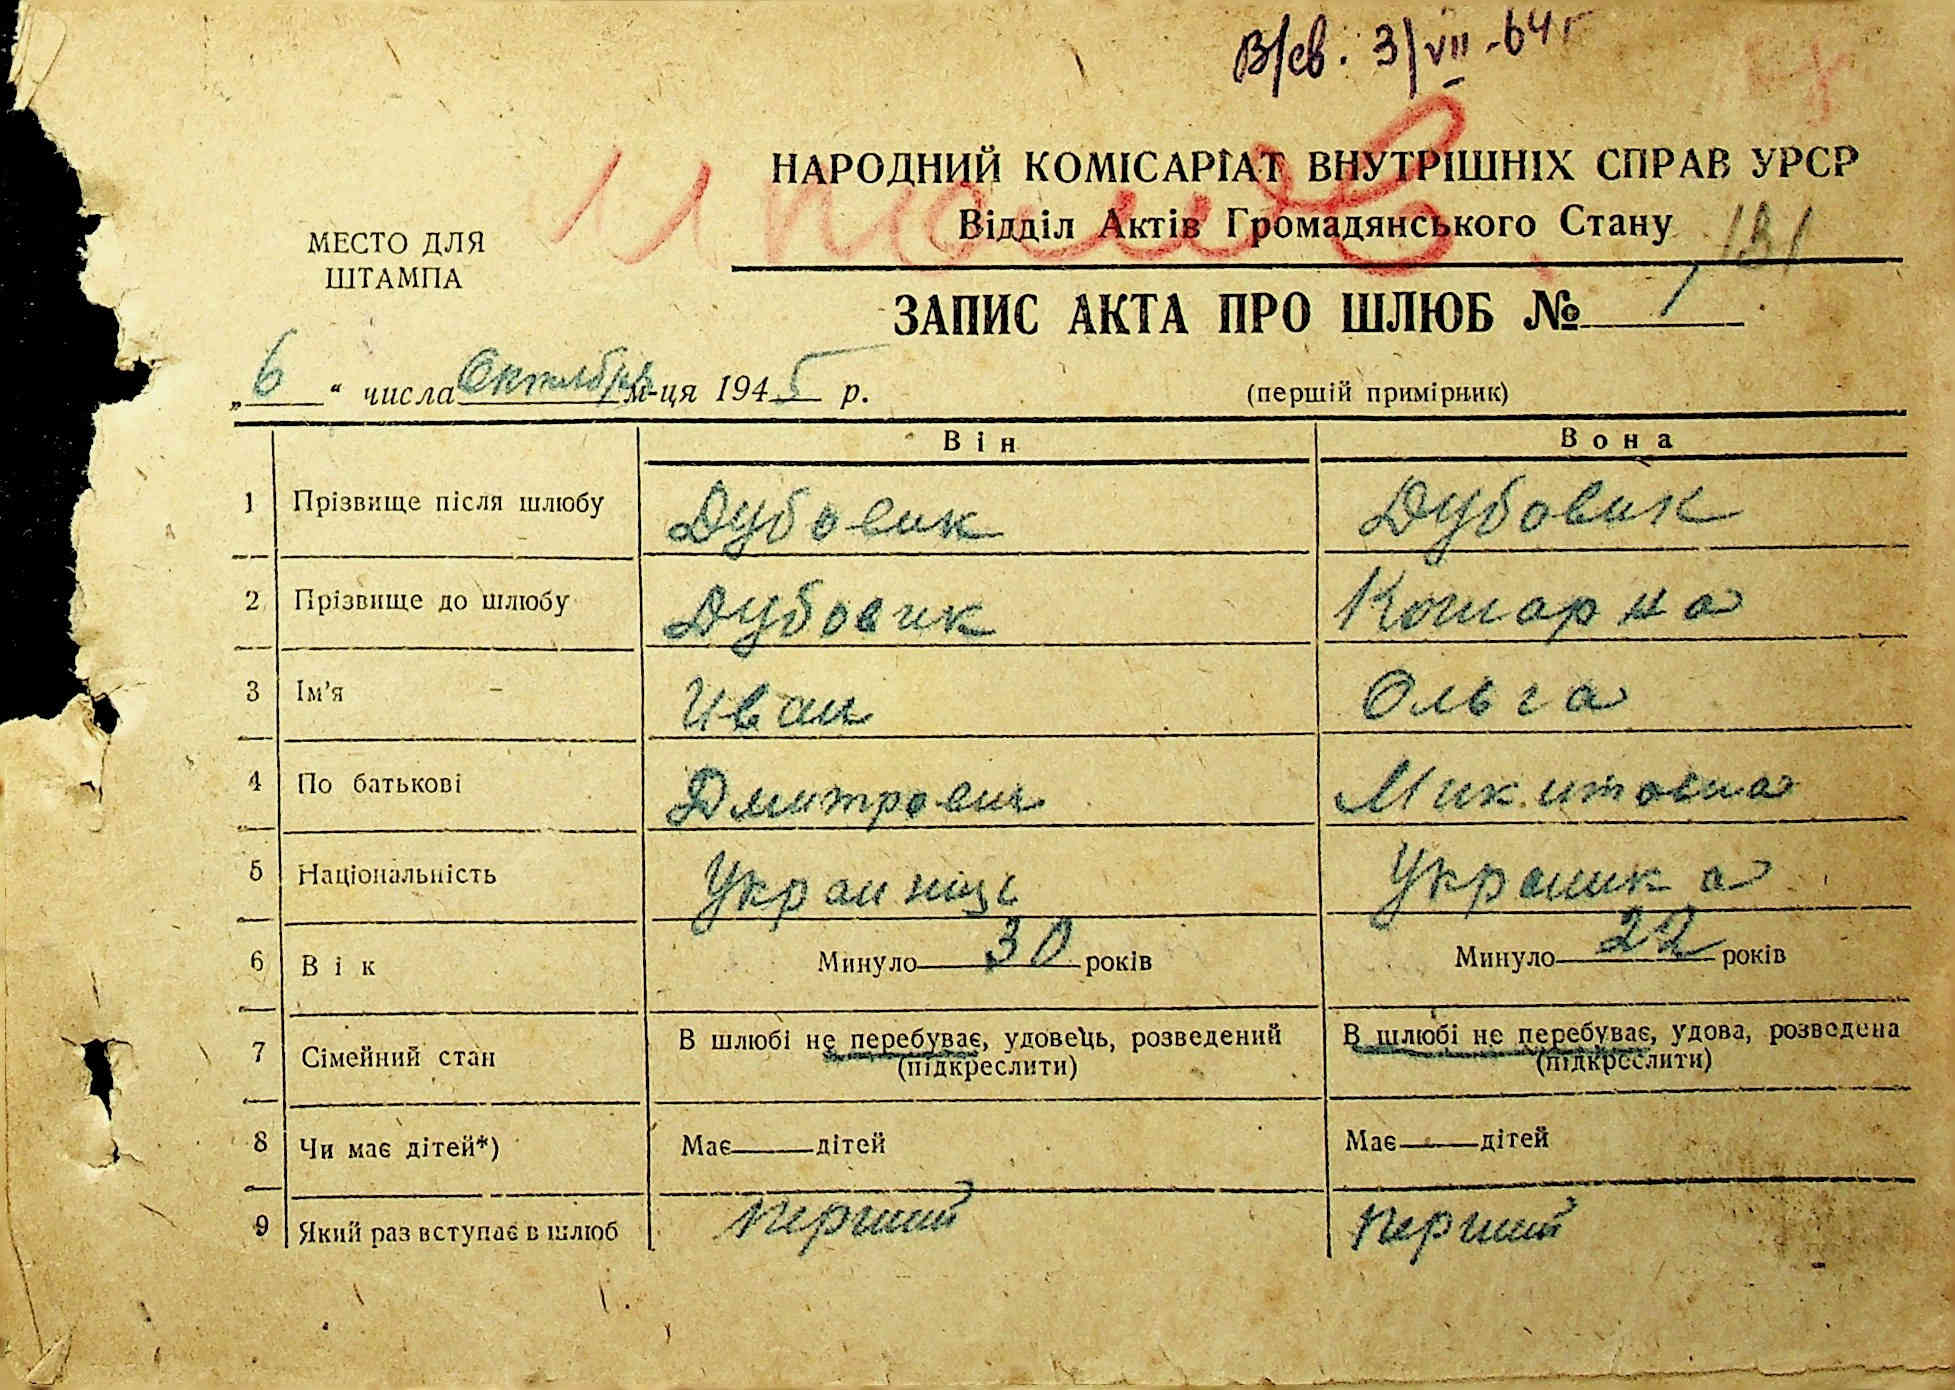 В/св. 3/VII-64 г
НАРОДНИЙ КОМІСАРІАТ ВНУТРІШНІХ СПРАВ УРСР
Відділ Актів Громадянського Стану
131
МЕСТО ДЛЯ
ШТАМПА
ЗАПИС АКТА ПРО ШЛЮБ № 1
„6“ числа Октября м-ця 1945 р.
(перший примірник)
Він Вона
1 Прізвище після шлюбу Дубовик Дубовик
2 Прізвище до шлюбу Дубовик Кошарна
3 Ім'я Иван Ольга
4 По батькові Дмитрович Микитовна
5 Національність Украинць Украинка
6 Вік Минуло 30 років Минуло 22 років
7 Сімейний стан В шлюбі не перебуває, удовець, розведений В шлюбі не перебуває, удова, розведена
(підкреслити) (підкреслити)
8 Чи має дітей*) Має — дітей Має — дітей
9 Який раз вступає в шлюб перший перший